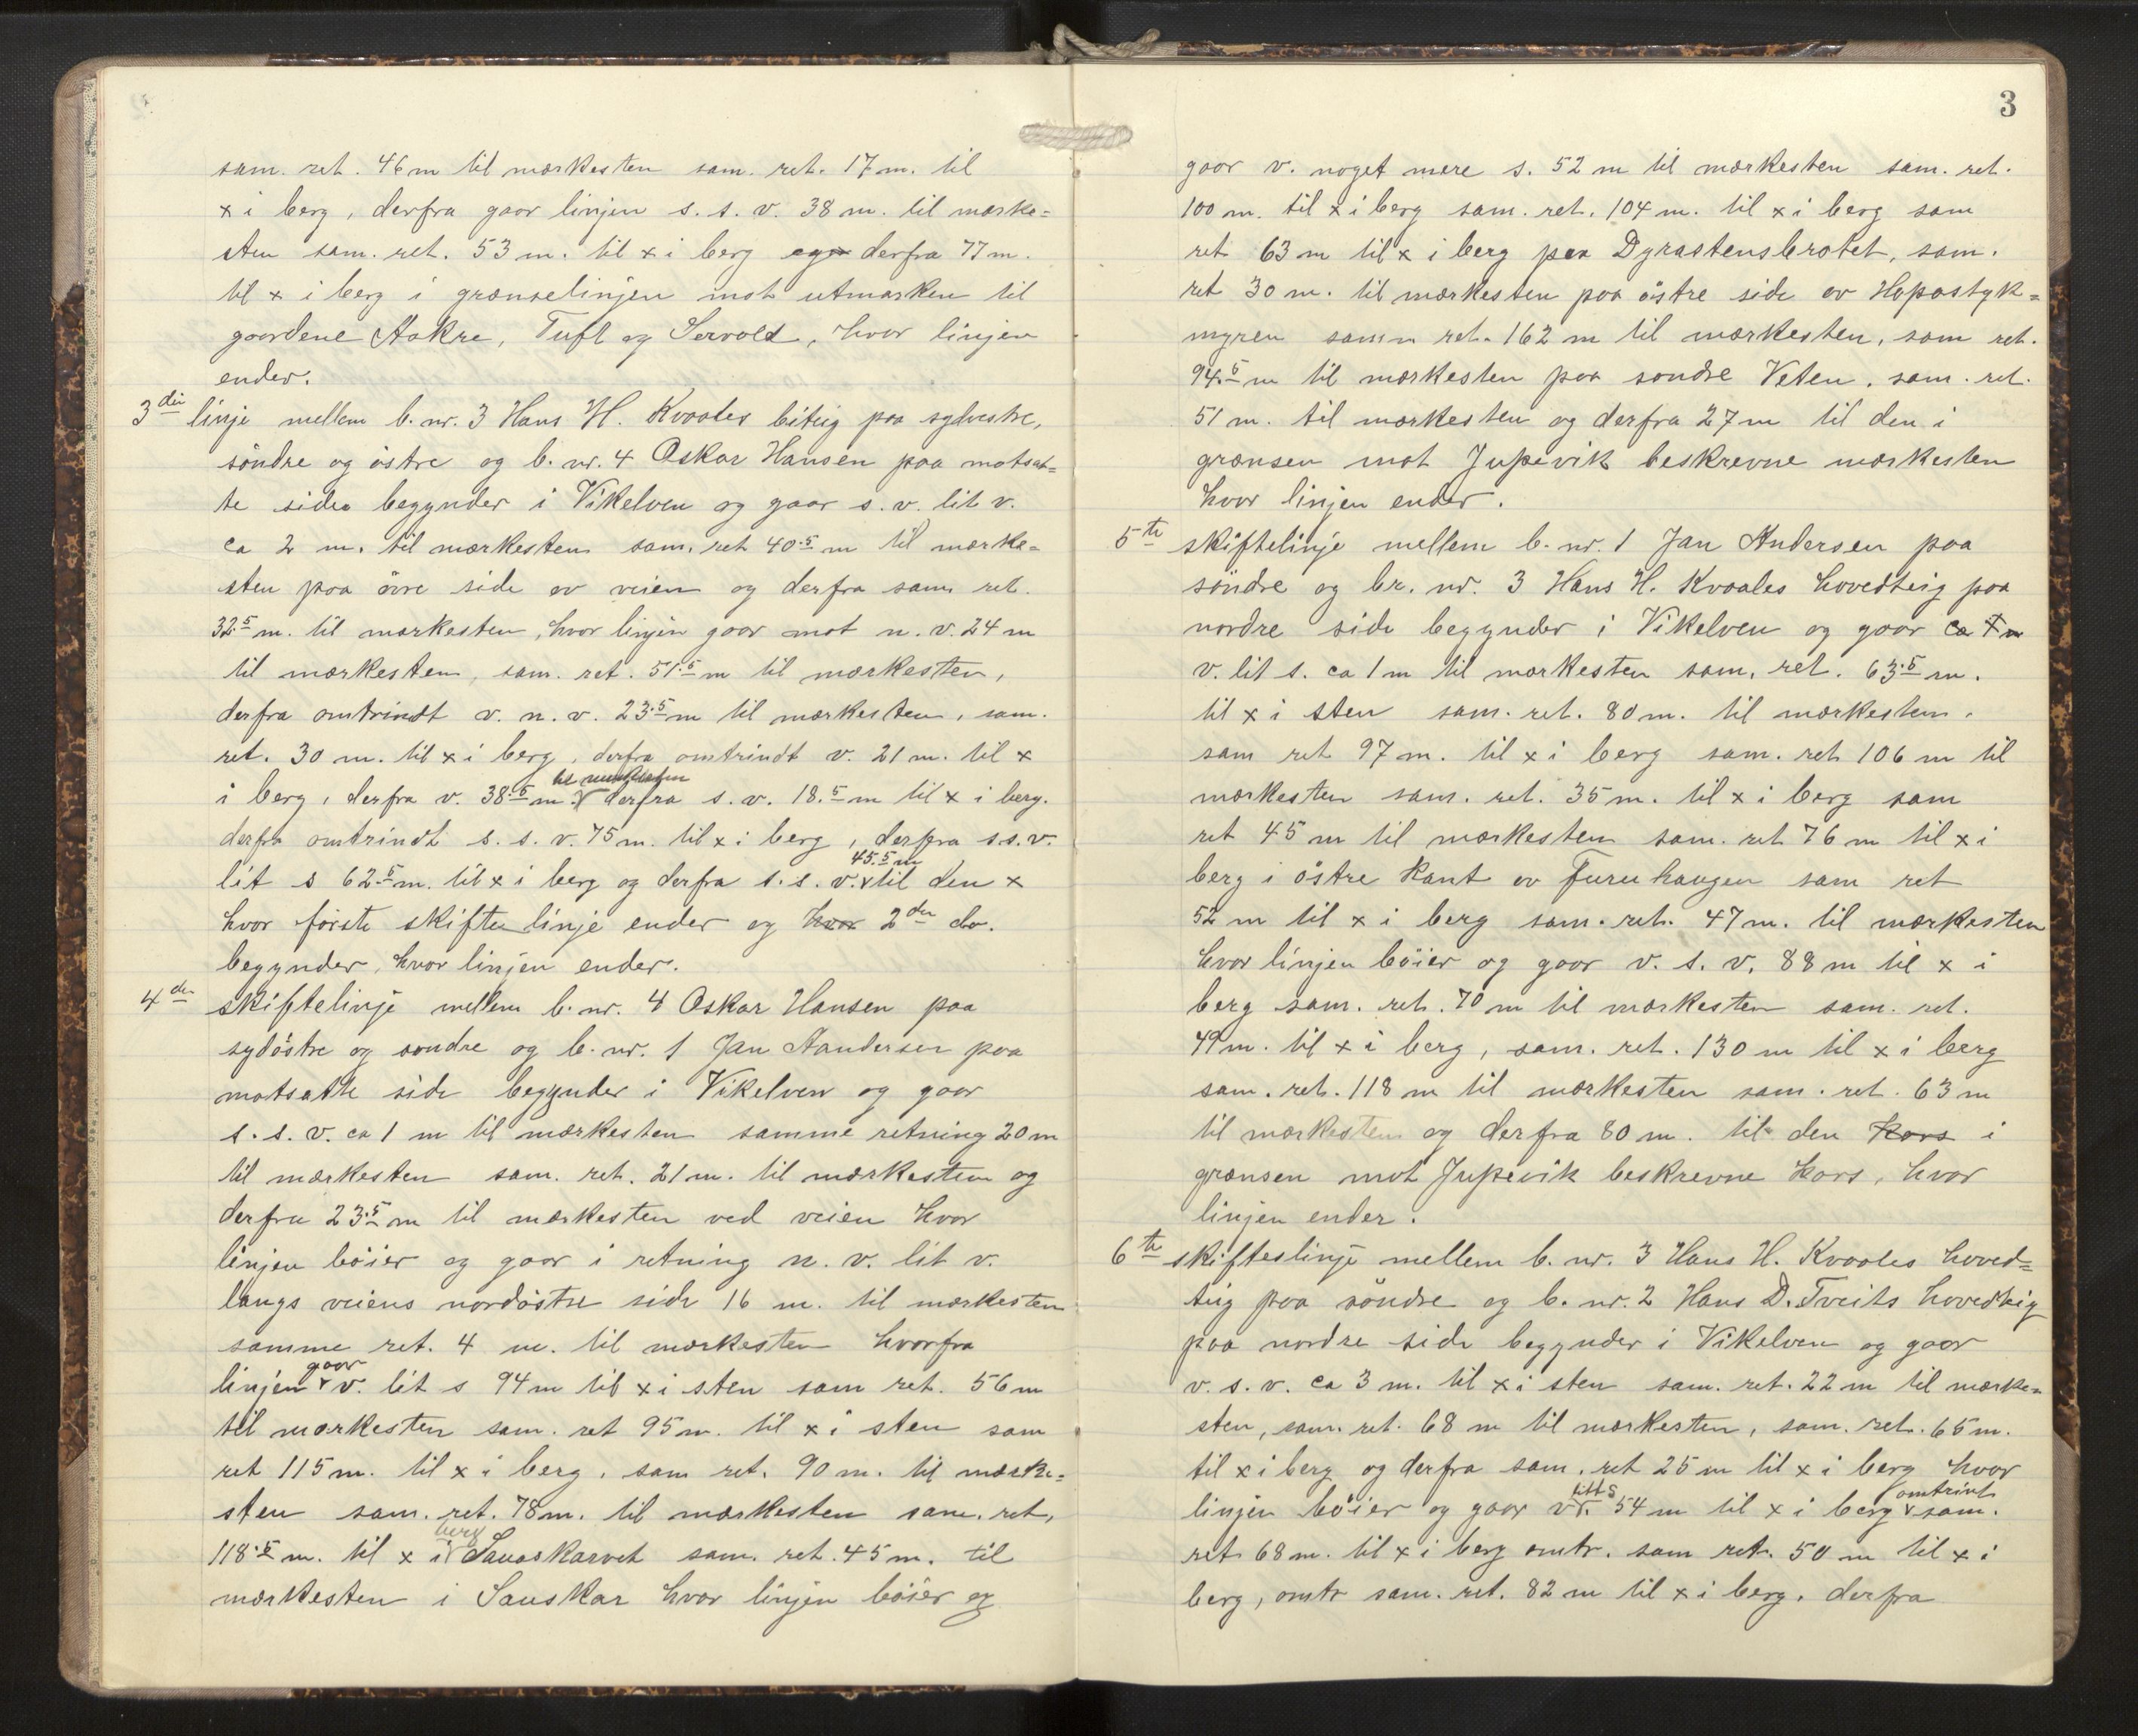 sam. ret. 46 m til mærkesten sam. ret. 17 m. til
x i berg, derfra gaar linjen s. s. v. 38 m. til mærke=
sten sam. ret. 53 m. til x i berg derfra 77 m.
til x i berg i grænselinjen mot utmarken til
gaardene Aakre, Tuft og Servold, hvor linjen
ender.
3die linje mellem b. nr. 3 Hans H. Kvaales biteig paa sydvestre,
söndre og östre og b. nr. 4 Oskar Hansen paa motsat=
te side begynder i Vikelven og gaar s. v. lit v.
ca 2 m. til mærkesten sam. ret 40.5 m til mærke=
sten paa övre side av veien og derfra sam ret.
32.5 m. til mærkesten, hvor linjen gaar mot n. v. 24 m
til mærkesten, sam. ret. 51.5 m til mærkesten,
derfra omtrindt v. n. v. 23.5 m til mærkesten, sam.
ret. 30 m. til x i berg, derfra omtrindt v. 21 m. til x
i berg, derfra v. 38.5 m. til mærkesten derfra s. v. 18.5 m til x i berg.
derfra omtrindt s. s. v. 75 m. til x i berg, derfra s. s. v.
lit s 62.5 m. til x i berg og derfra s. s. v. 45.5 m til den x
hvor förste skiftelinje ender og hvor 2den do.
begynder, hvor linjen ender.
4de skiftelinje mellem b. nr. 4 Oskar Hansen paa
sydöstre og söndre og b. nr. 1 Jan Aandersen paa
motsatte side begynder i Vikelven og gaar
s. s. v. ca 1 m til mærkesten samme retning 20 m
til mærkesten sam. ret. 21 m. til mærkesten og
derfra 23.5 m til mærkesten ved veien hvor
linjen böier og gaar i retning n. v. lit v.
langs veiens nordöstre side 16 m. til mærkesten
samme ret. 4 m. til mærkesten hvorfra
linjen gaar v. lit s 94 m til x i sten sam ret. 56 m
til mærkesten sam. ret 95 m. til x i sten sam
ret 115 m. til x i berg, sam ret. 90 m. til mærke=
sten sam. ret. 78 m. til mærkesten sam. ret,
118.5 m. til x i berg Sauaskarvet sam. ret. 45 m. til
mærkesten i Sauskar hvor linjen böier og
3
gaar v. noget mere s. 52 m til mærkesten sam. ret.
100 m. til x i berg sam. ret. 104 m. til x i berg sam
ret 63 m til x i berg paa Dyrastensbrotet, sam.
ret 30 m. til mærkesten paa östre side av Hopastyk=
myren samm ret. 162 m til mærkesten, sam ret.
94.5 m til mærkesten paa söndre Veten, sam. ret.
51 m. til mærkesten og derfra 27 m til den i
grænsen mot Jupevik beskrevne mærkesten
hvor linjen ender.
5te skiftelinje mellem b. nr. 1 Jan Andersen paa
söndre og br. nr. 3 Hans H. Kvaales hovedteig paa
nordre side begynder i Vikelven og gaar ca 1 m
v. lit s. ca 1 m til mærkesten sam. ret. 63.5 m.
til x i sten sam. ret. 80 m. til mærkesten,
sam ret 97 m. til x i berg sam. ret 106 m til
mærkesten sam. ret. 35 m. til x i berg sam
ret 45 m til mærkesten sam. ret 76 m til x i
berg i östre kant av Furuhaugen sam ret
52 m til x i berg sam. ret. 47 m. til mærkesten
hvor linjen böier og gaar v. s. v. 88 m til x i
berg sam. ret. 70 m til mærkesten sam. ret.
49 m. til x i berg, sam. ret. 130 m til x i berg
sam. ret. 118 m til mærkesten sam. ret. 63 m
til mærkesten og derfra 80 m. til den kors i
grænsen mot Jupevik beskrevne kors, hvor
linjen ender.
6te skifteslinje mellem b. nr. 3 Hans H. Kvaales hoved=
teig paa söndre og b. nr. 2 Hans D. Tveits hovedteig
paa nordre side begynder i Vikelven og gaar
v. s. v. ca 3 m. til x i sten sam. ret. 22 m til mærke=
sten, sam. ret. 68 m til mærkesten, sam. ret. 65 m.
til x i berg og derfra sam. ret 25 m til x i berg hvor
linjen böier og gaar v. litt s 54 m til x i berg omtrint sam.
ret 68 m. til x i berg omtr. sam ret. 50 m til x i
berg, omtr sam. ret. 82 m til x i berg, derfra